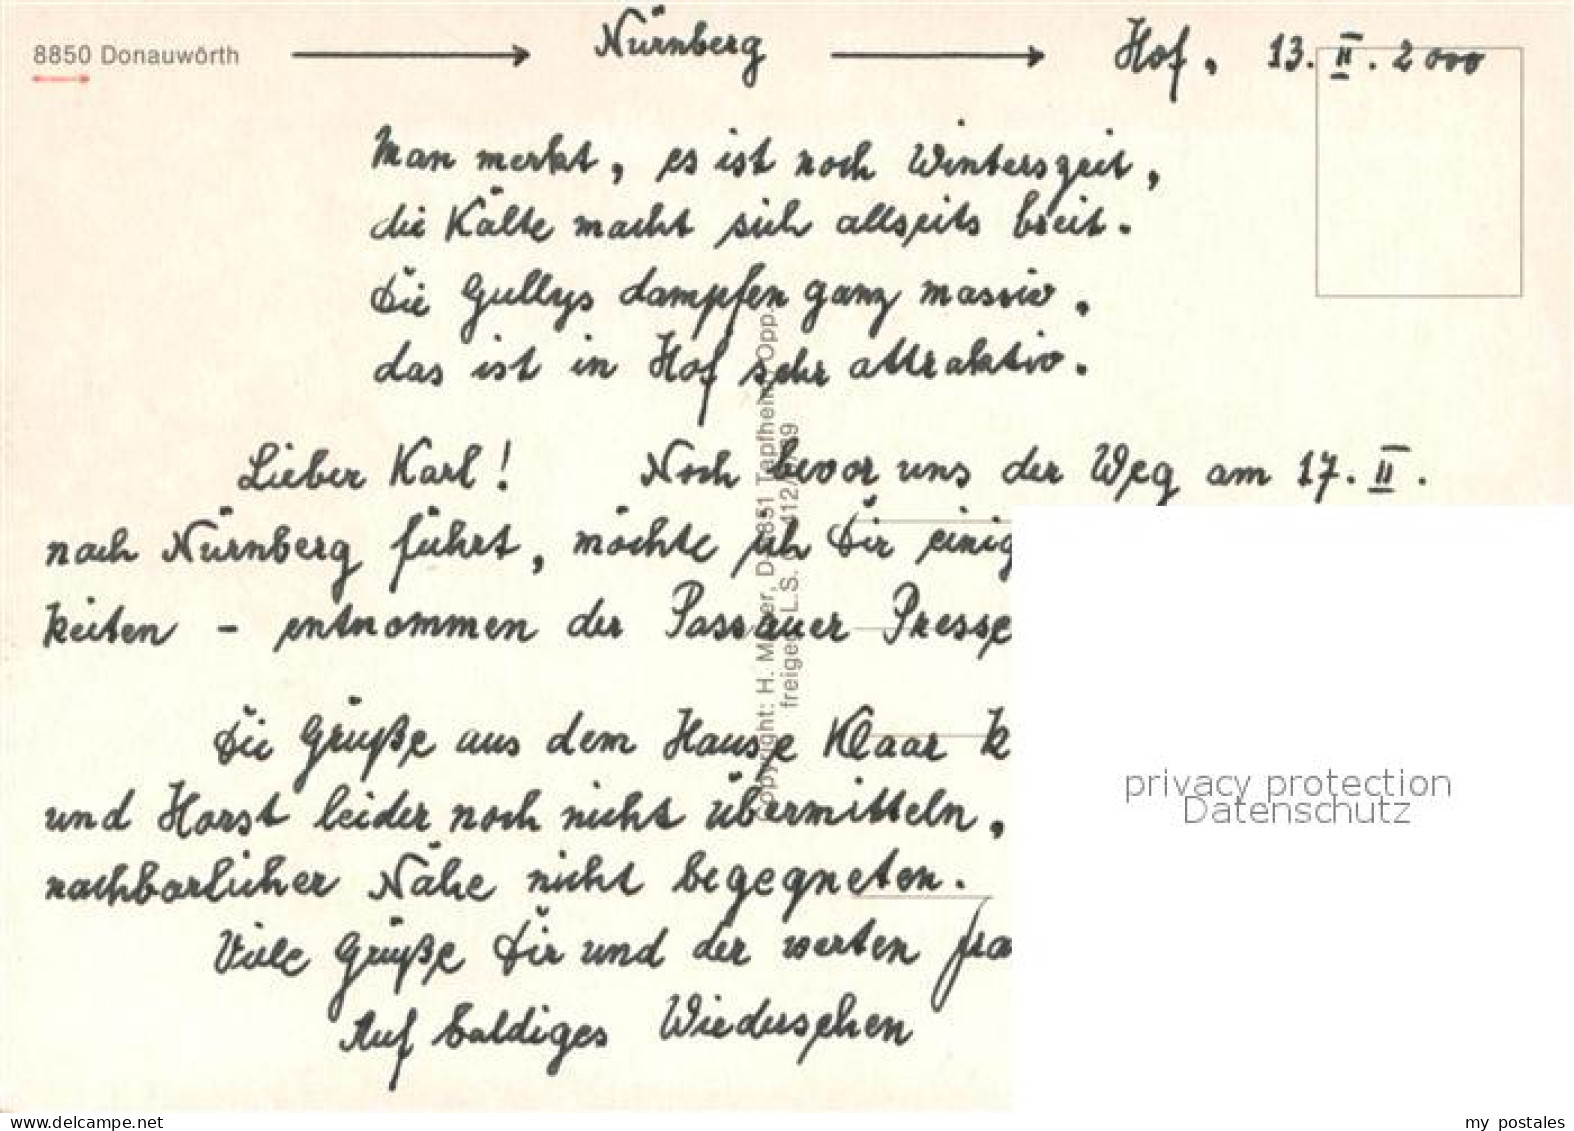 8850 Donauwörth → Nürnberg → Hof, 13. II. 2000
Man merkt, es ist noch Winterszeit,
die Kälte macht sich allseits breit.
Die Gullys dampfen ganz massiv,
das ist in Hof sehr attraktiv.
Lieber Karl! Noch bevor uns der Weg am 17. II.
nach Nürnberg führt, möchte ich Dir einig
keiten - entnommen der Passauer Presse
Die Grüße aus dem Hause Klaar k
und Horst leider noch nicht übermitteln,
nachbarlicher Nähe nicht begegneten.
Viele Grüße Dir und der werten Fra
Auf baldiges Wiedersehen
Copyright: H. M er, D-8851 Tapfheim Opp.
freigeg L.S.
privacy protection
Datenschutz
www.delcampe.net
my postales